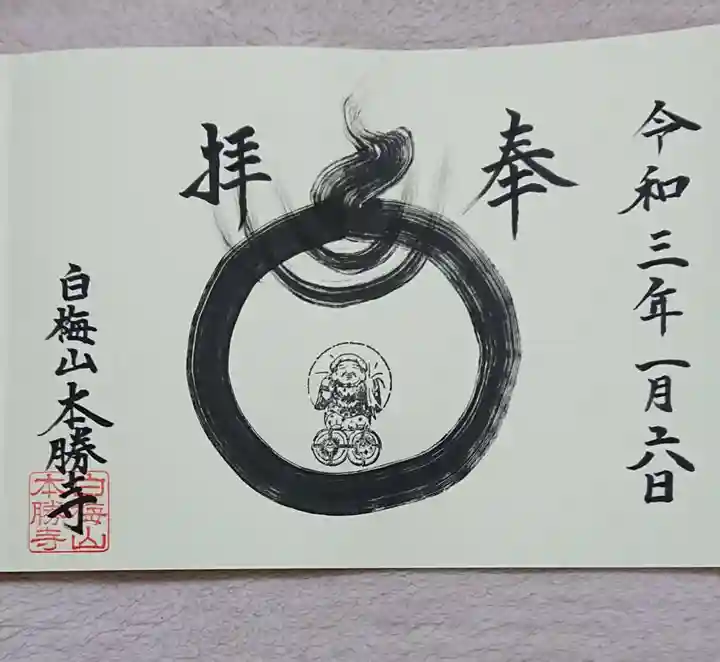 令和三年一月十六日
奉
拝
白梅山本勝寺
白梅山
本勝寺